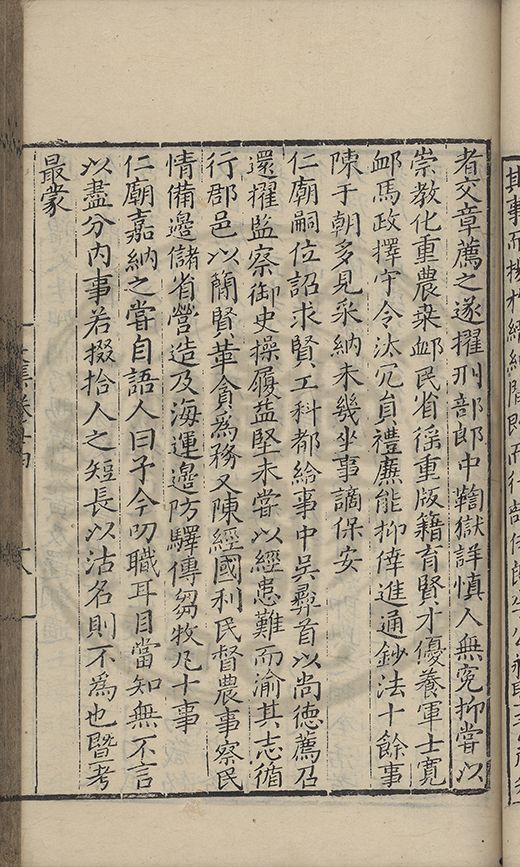 者交章薦之遂擢刑部郎中鞫獄詳慎人無寃抑嘗以
崇教化重農桑䘏民省徭重版籍育賢才優養軍士寛
䘏馬政擇守令汰冗員禮廉能抑倖進通鈔法十餘事
陳于朝多見采納未幾坐事謫保安
仁廟嗣位詔求賢工科都給事中吳彛首以尚德薦召
還擢監察御史操履益堅未嘗以經患難而渝其志循
行郡邑以簡賢革貪爲務又陳經國利民督農事察民
情備邊儲省營造及海運邊防驛傳芻牧凡十事
仁廟嘉納之嘗自語人曰予今叨職耳目當知無不言
以盡分内事若掇拾人之短長以沽名則不爲也曁考
最蒙